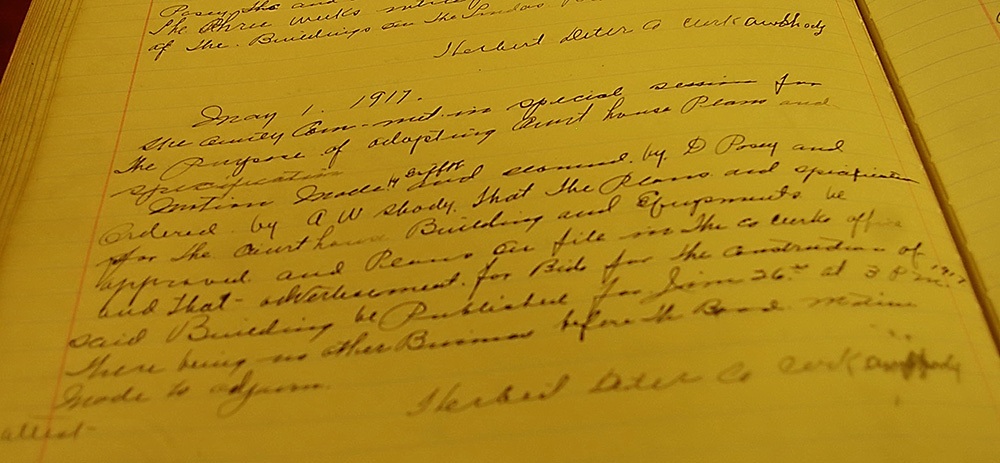 Posey, The and
The Three weeks
of The Buildings on The
Herbert Deter Co clerk awShody
May 1. 1917.
The county Com- met in special session for
The Purpose of adopting Court house Plans and
specification
Motion Made by and second by D Posey and
Ordered by A W Shody. That The Plans and specification
for The Court house Building and Equipments be
approved and Plans on file in The Co clerks office
and That advertisement for Bids for The Construction of
said Building be Published for June 26th at 3 P.M. 1917
There being no other Business before The Board. Motion
Made to adjourn.
Herbert Deter Co clerk awShody
attest-